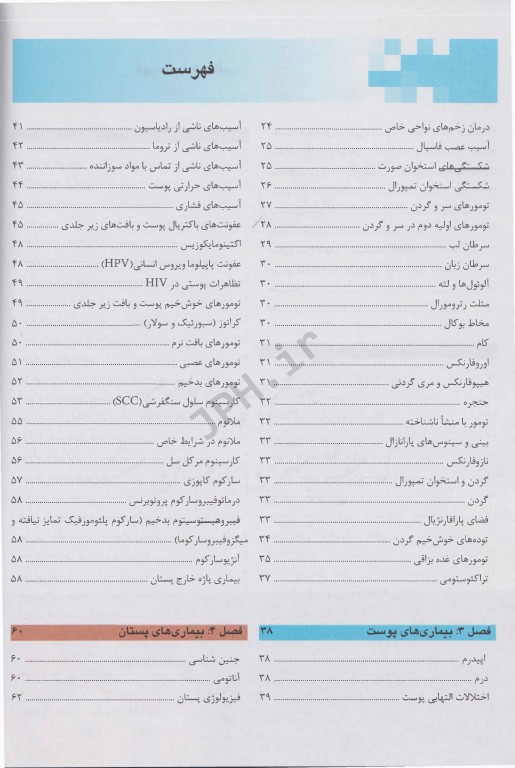 فهرست
درمان زخم‌های نواحی خاص ۲۴
آسیب عصب فاسیال ۲۵
شکستگی‌های استخوان صورت ۲۵
شکستگی استخوان تمپورال ۲۶
تومورهای سر و گردن ۲۷
تومورهای اولیه دوم در سر و گردن ۲۸
سرطان لب ۲۹
سرطان زبان ۳۰
آلوئول‌ها و لثه ۳۰
مثلث رترومورال ۳۰
مخاط بوکال ۳۰
کام ۳۱
اوروفارنکس ۳۱
هیپوفارنکس و مری گردنی ۳۱
حنجره ۳۲
تومور با منشأ ناشناخته ۳۲
بینی و سینوس‌های پارانازال ۳۳
نازوفارنکس ۳۳
گردن و استخوان تمپورال ۳۳
گردن ۳۳
فضای پارافارنژیال ۳۳
توده‌های خوش‌خیم گردن ۳۴
تومورهای غده بزاقی ۳۵
تراکئوستومی ۳۷
فصل ۳: بیماری‌های پوست ۳۸
اپیدرم ۳۸
درم ۳۸
اختلالات التهابی پوست ۳۹
آسیب‌های ناشی از رادیاسیون ۴۱
آسیب‌های ناشی از تروما ۴۲
آسیب‌های ناشی از تماس با مواد سوزاننده ۴۳
آسیب‌های حرارتی پوست ۴۴
آسیب‌های فشاری ۴۵
عفونت‌های باکتریال پوست و بافت‌های زیر جلدی ۴۵
اکتینومایکوزیس ۴۸
عفونت پاپیلوما ویروس انسانی(HPV) ۴۸
تظاهرات پوستی در HIV ۴۹
تومورهای خوش‌خیم پوست و بافت زیر جلدی ۴۹
کراتوز (سبورئیک و سولار) ۵۰
تومورهای بافت نرم ۵۰
تومورهای عصبی ۵۱
تومورهای بدخیم ۵۲
کارسینوم سلول سنگفرشی(SCC) ۵۳
ملانوم ۵۵
ملانوم در شرایط خاص ۵۶
کارسینوم مرکل سل ۵۶
سارکوم کاپوزی ۵۷
درماتوفیبروسارکوم پروتوبرنس ۵۸
فیبروهیستوسیتوم بدخیم (سارکوم پلئومورفیک تمایز نیافته و
میگزوفیبروسارکوما) ۵۸
آنژیوسارکوم ۵۸
بیماری پاژه خارج پستان ۵۸
فصل ۴: بیماری‌های پستان ۶۰
جنین شناسی ۶۰
آناتومی ۶۰
فیزیولوژی پستان ۶۲
JPH.ir